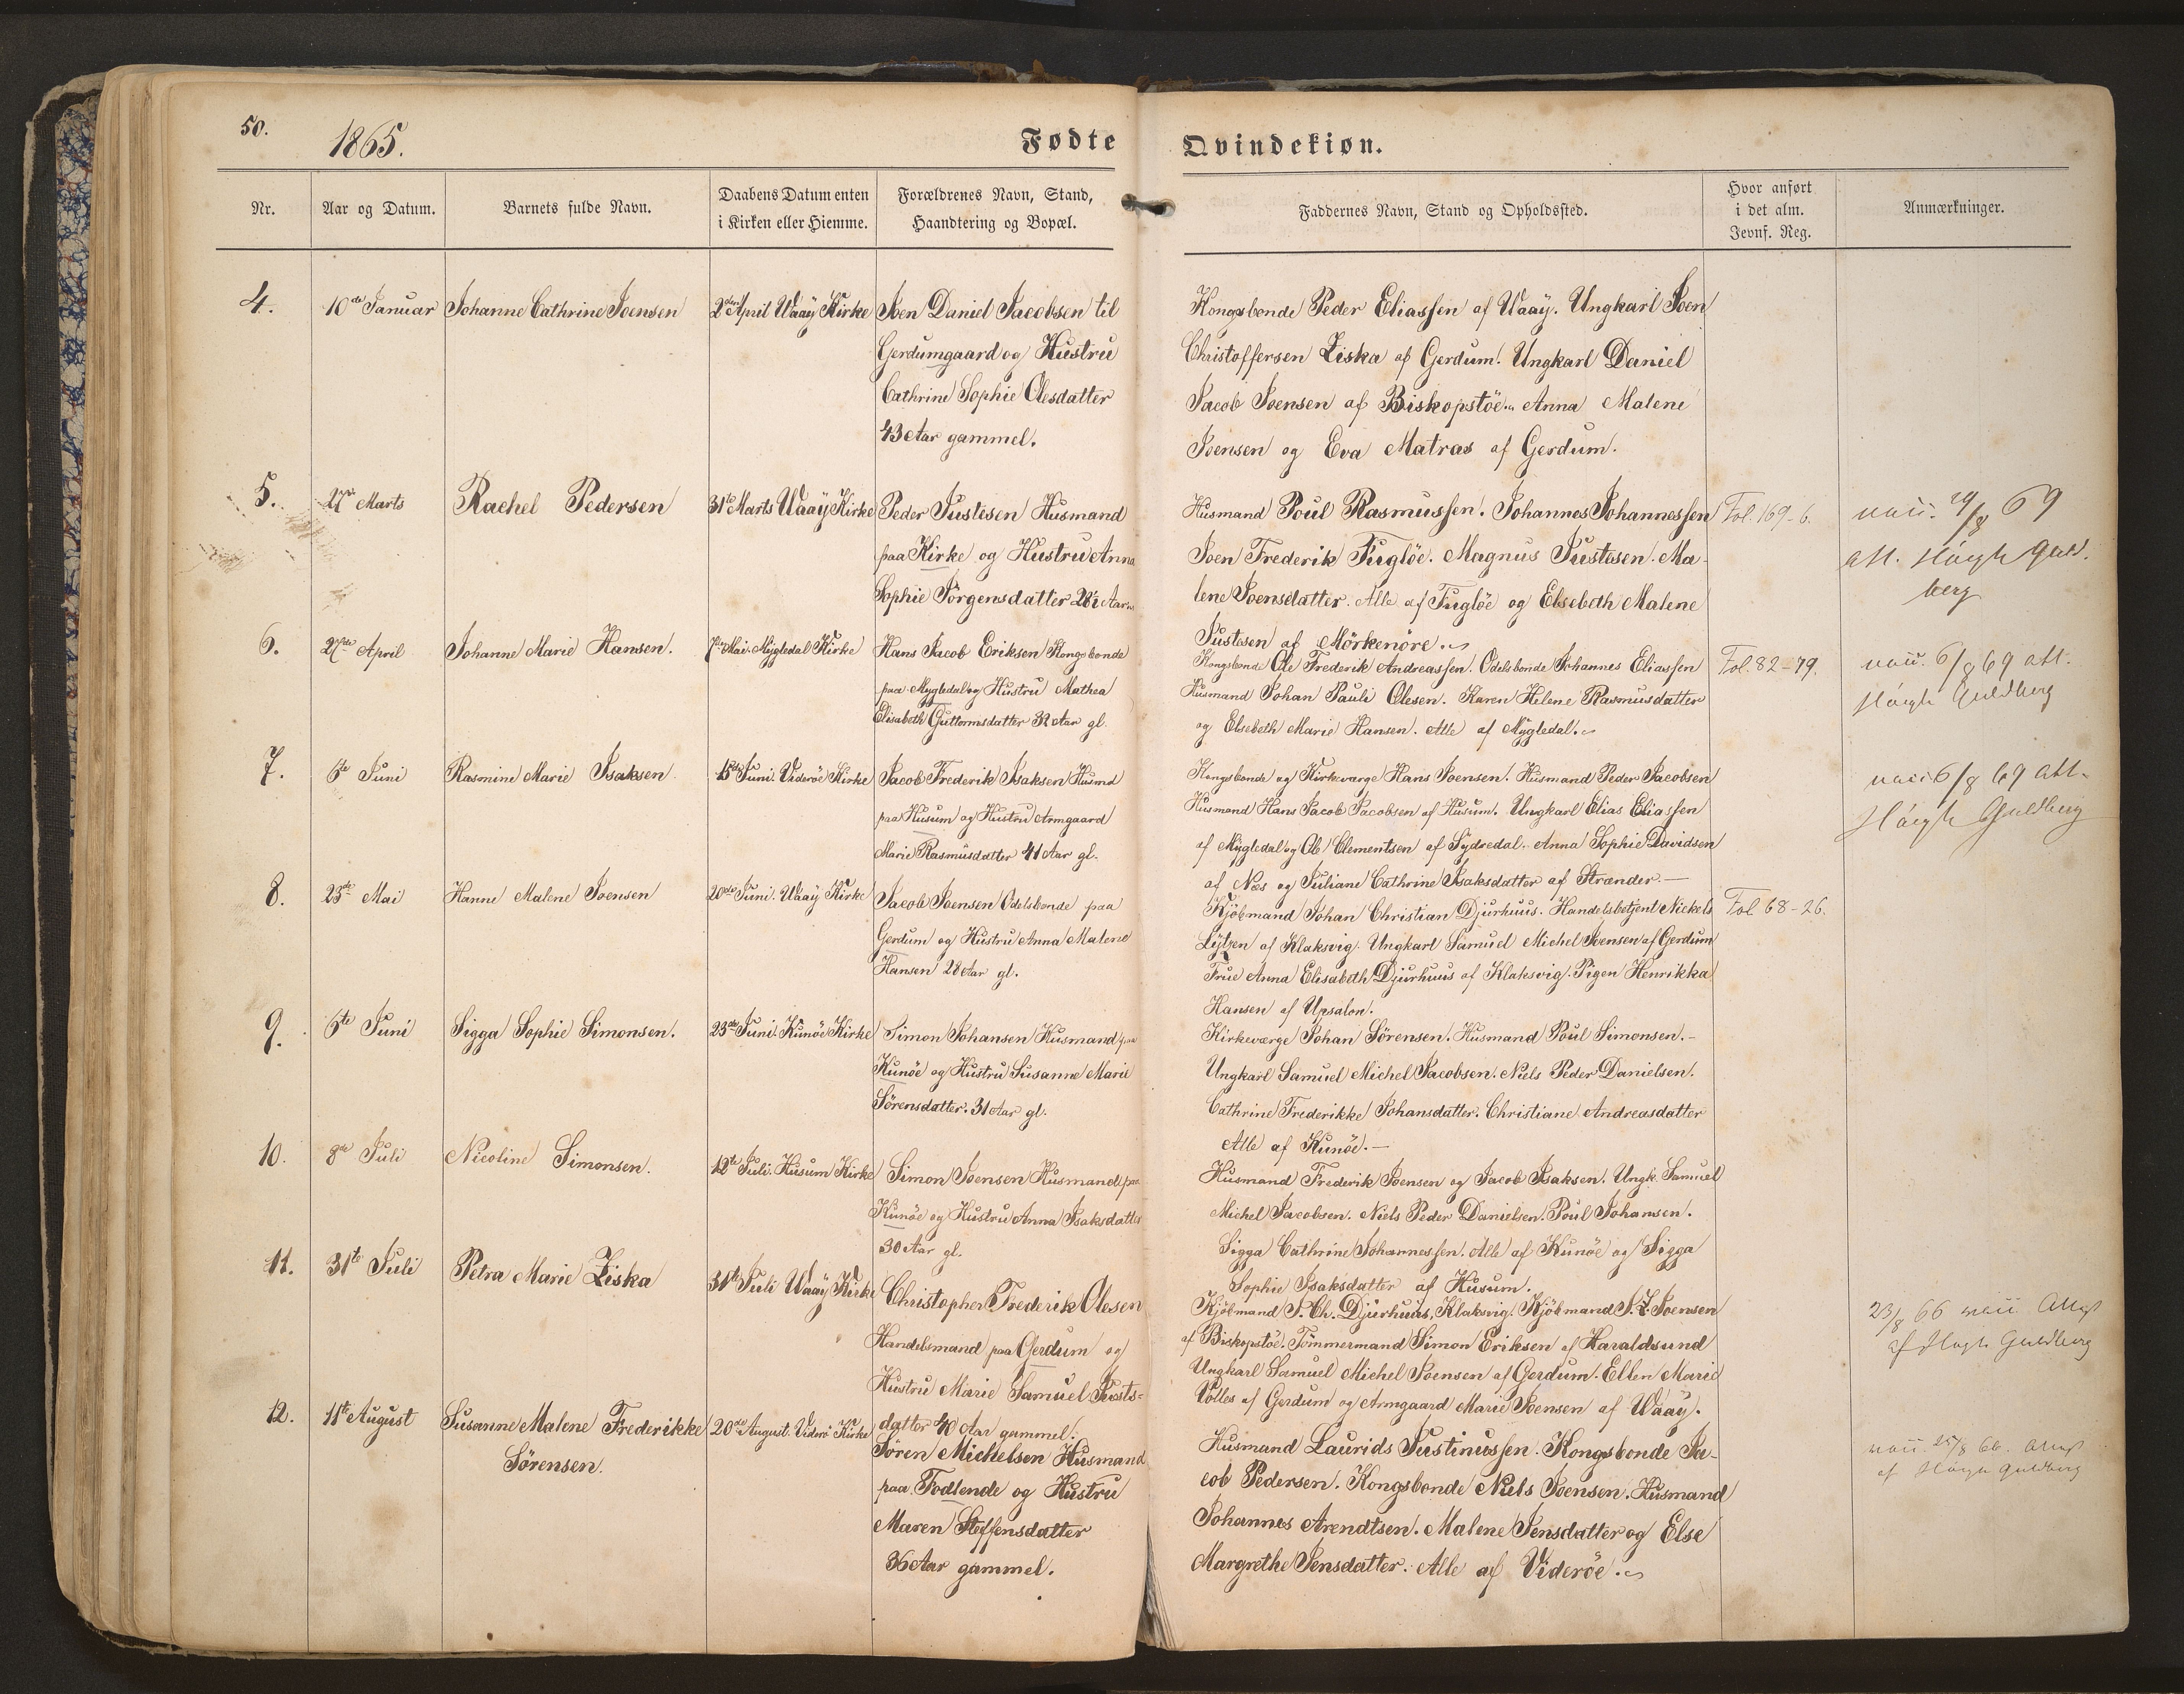 50.
1865.
Fødte
Qvindekiøn.
Nr.
Aar og Datum.
Barnets fulde Navn.
Daabens Datum enten
i Kirken eller Hiemme.
Forældrenes Navn, Stand,
Haandtering og Bopæl.
Faddernes Navn, Stand og Opholdssted.
Hvor anført
i det alm.
Jevnf. Reg.
Anmærkninger.
4.
10de Januar
Johanne Cathrine Joensen
2den April Waaÿ Kirke
Joen Daniel Jacobsen til
Gerdumgaard og Hustru
Cathrine Sophie Olesdatter
43 Aar gammel.
Kongsbonde Peder Eliassen af Waaÿ. Ungkarl Joen
Christoffersen Ziska af Gerdum. Ungkarl Daniel
Jacob Joensen af Biskopstöe. Anna Malene
Joensen og Eva Matras af Gerdum.
5.
27de Marts
Rachel Pedersen
31te Marts Waaÿ Kirke
Peder Justesen Husmand
paa Kirke og Hustru Anna
Sophie Jörgensdatter 28½ Aar
Husmand Poul Rasmussen. Johannes Johannessen
Joen Frederik Fuglöe. Magnus Justesen. Ma-
lene Joensdatter. Alle af Fuglöe og Elsebeth Malene
Justesen af Mörkenöre.
Fol. 169-6.
vacc. 29/8 69
att. Høegh Guld-
berg
6.
27de April
Johanne Marie Hansen.
7de Mai. Mygledal Kirke
Hans Jacob Eriksen Kongsbonde
paa Mygledal og Hustru Mathea
Elisabeth Guttormsdatter 32 Aar gl.
Kongsbonde Ole Frederik Andreassen. Odelsbonde Johannes Eliassen
Husmand Johan Pauli Olesen. Karen Helene Rasmusdatter
og Elsebeth Marie Hansen. Alle af Mygledal.
Fol. 82-79.
vacc. 6/8 69 att.
Høegh Guldberg
7.
6te Juni
Rasmine Marie Isaksen.
15de Juni. Videröe Kirke
Jacob Frederik Isaksen Husmd
paa Husum og Hustru Armgaard
Marie Rasmusdatter 41 Aar gl.
Kongsbonde og Kirkeværge Hans Joensen. Husmand Peder Jacobsen
Husmand Hans Jacob Jacobsen af Husum. Ungkarl Elias Eliassen
af Mygledal og Ole Clementsen af Sydredal. Anna Sophie Davidsen
af Næs og Juliane Cathrine Isaksdatter af Strænder.
vacc 6/8 69 att.
Høegh Guldberg
8.
23de Mai
Hanne Malene Joensen
20de Juni. Waaÿ Kirke
Jacob Joensen Odelsbonde paa
Gerdum og Hustru Anna Malene
Hansen 28 Aar gl.
Kjöbmand Johan Christian Djurhuus. Handelsbetjent Nickels
Lützen af Klaksvig. Ungkarl Samuel Michel Joensen af Gerdum
Frue Anna Elisabeth Djurhuus af Klaksvig. Pigen Henrikka
Hansen af Upsalon.
Fol 68-26.
9.
6te Juni
Sigga Sophie Simonsen.
23de Juni. Kunöe Kirke
Simon Johansen Husmand paa
Kunöe og Hustru Susanne Marie
Sörensdatter. 31 Aar gl.
Kirkeværge Johan Sörensen. Husmand Poul Simonsen.
Ungkarl Samuel Michel Jacobsen. Niels Peder Danielsen.
Cathrine Frederikke Johansdatter. Christiane Andreasdatter
Alle af Kunöe.
10.
8de Juli
Nicoline Simonsen.
12te Juli. Husum Kirke
Simon Joensen Husmand paa
Kunöe og Hustru Anna Isaksdatter
30 Aar gl.
Husmand Frederik Joensen og Jacob Isaksen. Ungk. Samuel
Michel Jacobsen. Niels Peder Danielsen. Poul Johansen.
Sigga Cathrine Johannessen. Alle af Kunöe og Sigga
Sophie Isaksdatter af Husum.
11.
31te Juli
Petra Marie Ziska
31te Juli Waaÿ Kirke
Christopher Frederik Olesen
Handelsmand paa Gerdum og
Hustru Marie Samuel Justs-
datter 40 Aar gammel.
Kjöbmand J. Ch. Djurhuus, Klaksvig. Kjöbmand J. Z. Joensen
af Biskopstöe. Tömmermand Simon Eriksen af Haraldsund
Ungkarl Samuel Michel Joensen af Gerdum. Ellen Marie
Völles af Gerdum og Armgaard Marie Joensen af Waaÿ.
23/8 66 vacc. Attest
af Høegh Guldberg
12.
11te August
Susanne Malene Frederikke
Sörensen.
20de August. Viderö Kirke
Sören Michelsen Husmand
paa Todtende og Hustru
Maren Steffensdatter
36 Aar gammel.
Husmand Laurids Justinussen. Kongsbonde Ja-
cob Pedersen. Kongsbonde Niels Joensen. Husmand
Johannes Arendtsen. Malene Jensdatter og Else
Margrethe Jensdatter. Alle af Viderøe.
vacc. 25/8 66. Attest
af Høegh Guldberg